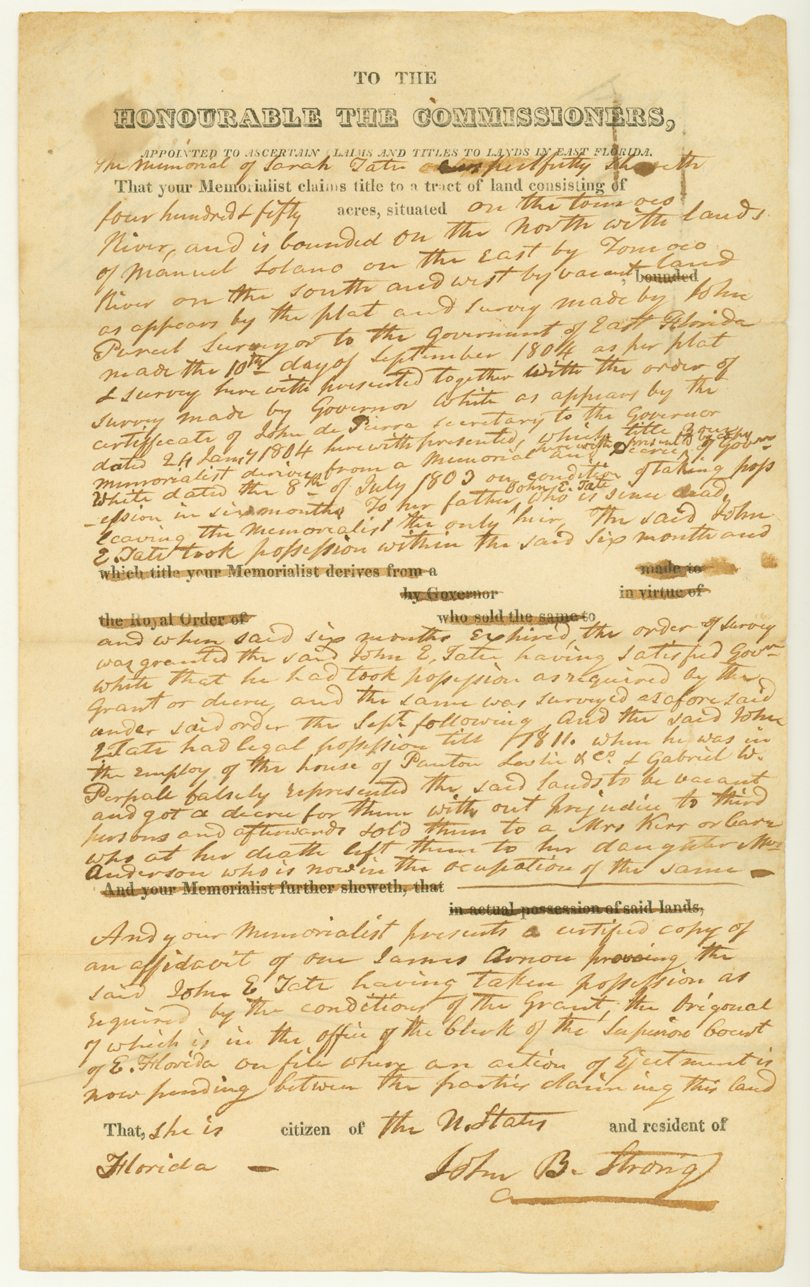 TO THE
HONOURABLE THE COMMISSIONERS,
APPOINTED TO ASCERTAIN CLAIMS AND TITLES TO LANDS IN EAST FLORIDA.
The Memorial of Sarah Tate respectfully sheweth
That your Memorialist claims title to a tract of land consisting of
four hundred & fifty acres, situated on the tomoco
River, and is bounded on the North with lands
of Manuel Solano on the East by Tomoco
River on the South and west by vacant land bounded
as appears by the plat and survey made by John
Purcel Surveyor to the government of East Florida
made the 10th day of September 1804 as per plat
& survey herewith presented together with the order of
survey made by Governor White as appears by the
certificate of John de Pierra secretary to the Governor
dated 24 Jany 1804 herewith presented, which title your
memorialist derives from a Memorial and Decree of Governor
herewith presented
White dated the 8th of July 1803 on condition of taking poss
-ession in six months To her father, John E. Tate who is since dead,
leaving the Memorialist the only heir, The said John
E. Tate took possession within the said six month and
which title your Memorialist derives from a made to
by Governor in virtue of
the Royal Order of who sold the same to
and when said six months Expired, the order of survey
was granted the said John E, Tate having satisfied Govr
White that he had took possession as required by the
Grant or decree, and the same was surveyed as afore said
under said order the Sept following And the said John
E Tate had legal possession till 1811. when he was in
the employ of the house of Panton Leslie & Co. & Gabriel W.
Perpall falsely represented the said lands to be vacant
and got a decree for them with out prejudice to third
persons and afterwards sold them to a Mrs Kerr or Carr
who at her death left them to her daughter Mrs
Anderson who is now in the ocupation of the same
And your Memorialist further sheweth, that
in actual possession of said lands,
And your Memorialist presents a certified copy of
an affidavit of one James Arnou proveing the
said John E Tate having taken possession as
required by the conditions of the Grant, the Origonal
of which is in the office of the Clerk of the Superior Court
of E. Florida on file where an action of Ejectment is
now pending between the parties claiming this land
That, she is citizen of the U. States and resident of
Florida John B. Strong